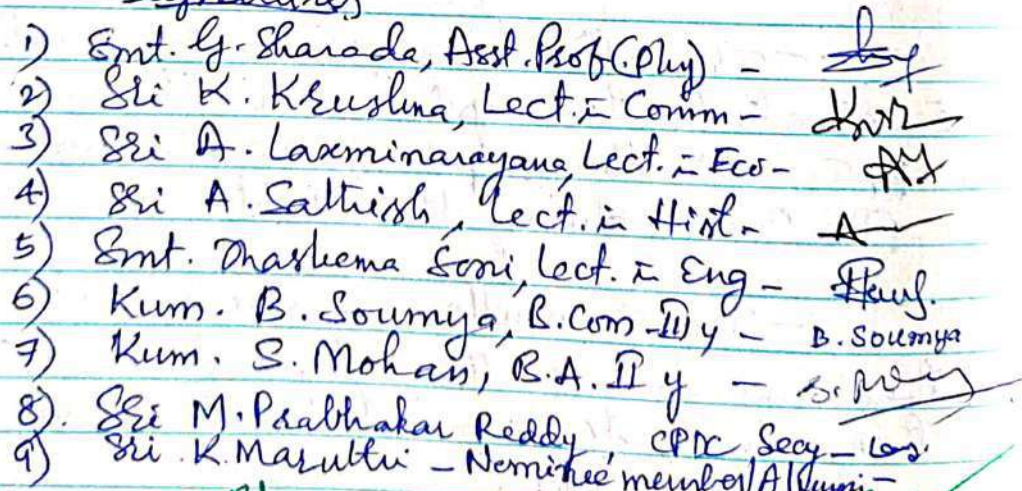 Signatures
1) Smt. G. Sharada, Asst. Prof (Phy) -
2) Sri K. Krushna, Lect. in Comm -
3) Sri A. Laxminarayana, Lect. in Eco -
4) Sri A. Sathish, Lect. in Hist - A
5) Smt. Thasleema Soni, Lect. in Eng -
6) Kum. B. Soumya, B.Com - III y - B. Soumya
7) Kum. S. Mohan, B.A. II y -
8). Sri M. Prabhakar Reddy, CPDC Secy -
9) Sri K. Maruthi - Nominee member/Alumni -